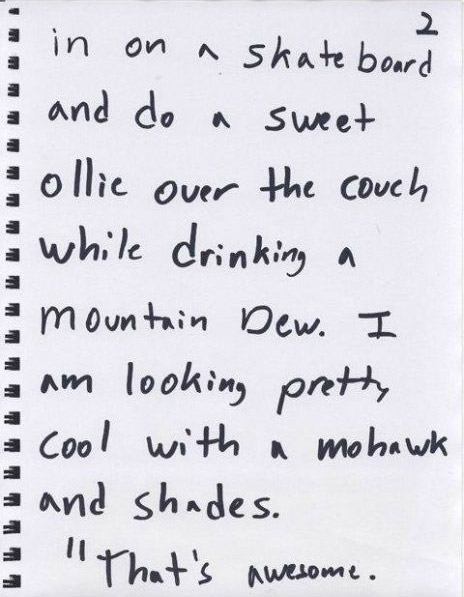 2
in on a skateboard
and do a sweet
ollie over the couch
while drinking a
mountain Dew. I
am looking pretty
cool with a mohawk
and shades.
"That's awesome.